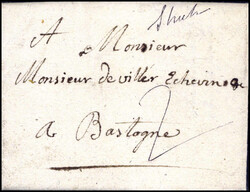 A Monsieur
Monsieur de viller Echevin
a Bastogne
2